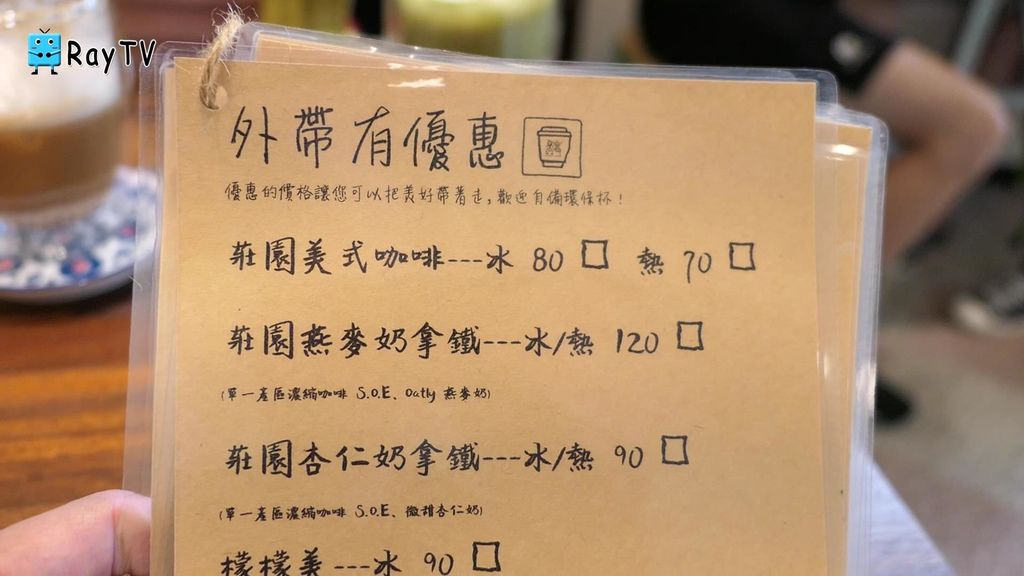 RayTV
外帶有優惠
優惠的價格讓您可以把美好帶著走,歡迎自備環保杯!
莊園美式咖啡---冰 80 □ 熱 70 □
莊園燕麥奶拿鐵---冰/熱 120 □
(單一產區濃縮咖啡 S.O.E、Oatly 燕麥奶)
莊園杏仁奶拿鐵---冰/熱 90 □
(單一產區濃縮咖啡 S.O.E、微甜杏仁奶)
檬檬美---冰 90 □